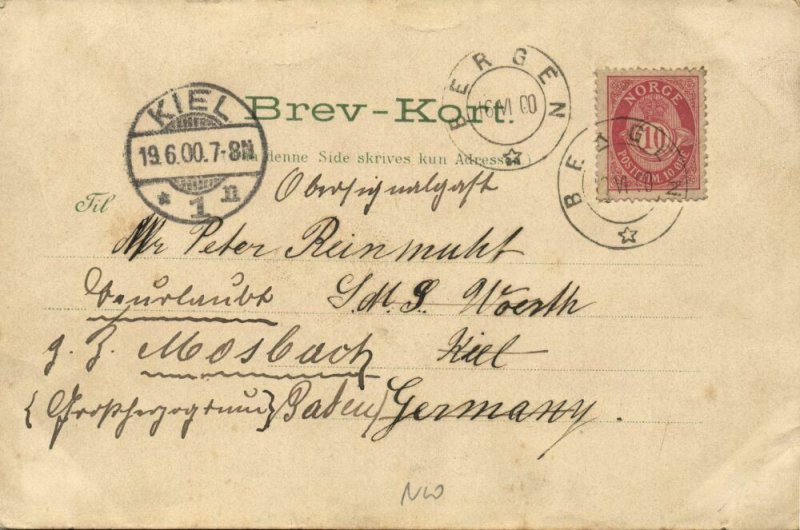 BERGEN
16 VI 00
KIEL
19.6.00.7-8N
* 1 n
Brev-Kort.
NORGE
10
POSTFRIM. 10 ORE
BERGEN
denne Side skrives kun Adressen)
Obersignalgast
Til
Mr Peter Reinmuht
Beurlaubt S.M.S. Woerth
z. Z. Mosbach Kiel
{Großherzogtum} Baden/ Germany.
NW